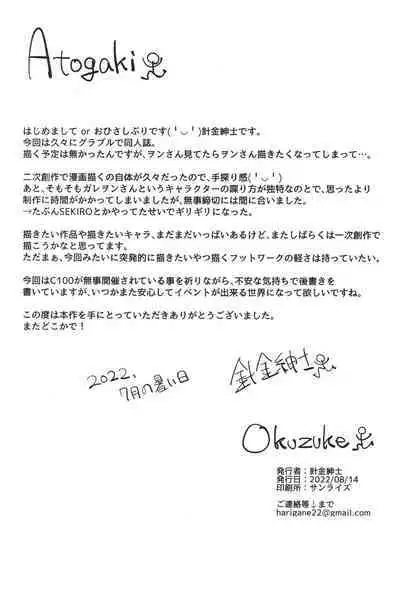 Atogaki
はじめまして or おひさしぶりです( ╹◡╹)針金紳士です。
今回は久々にグラブルで同人誌。
描く予定は無かったんですが、ヲンさん見てたらヲンさん描きたくなってしまって…。
二次創作で漫画描くの自体が久々だったので、手探り感( ╹◡╹)
あと、そもそもガレヲンさんというキャラクターの喋り方が独特なのとで、思ったより
制作に時間がかかってしまいましたが、無事締切には間に合いました。
→たぶんSEKIROとかやってたせいでギリギリになった。
描きたい作品や描きたいキャラ、まだまだいっぱいあるけど、またしばらくは一次創作で
描こうかなと思ってます。
ただまぁ、今回みたいに突発的に描きたいやつ描くフットワークの軽さは持っていたい。
今回はC100が無事開催されている事を祈りながら、不安な気持ちで後書きを
書いていますが、いつかまた安心してイベントが出来る世界になって欲しいですね。
この度は本作を手にとっていただきありがとうございました。
またどこかで！
2022,
7月の暑い日
針金紳士
Okuzuke
発行者：針金紳士
発行日：2022/08/14
印刷所：サンライズ
ご連絡等↓まで
harigane22@gmail.com